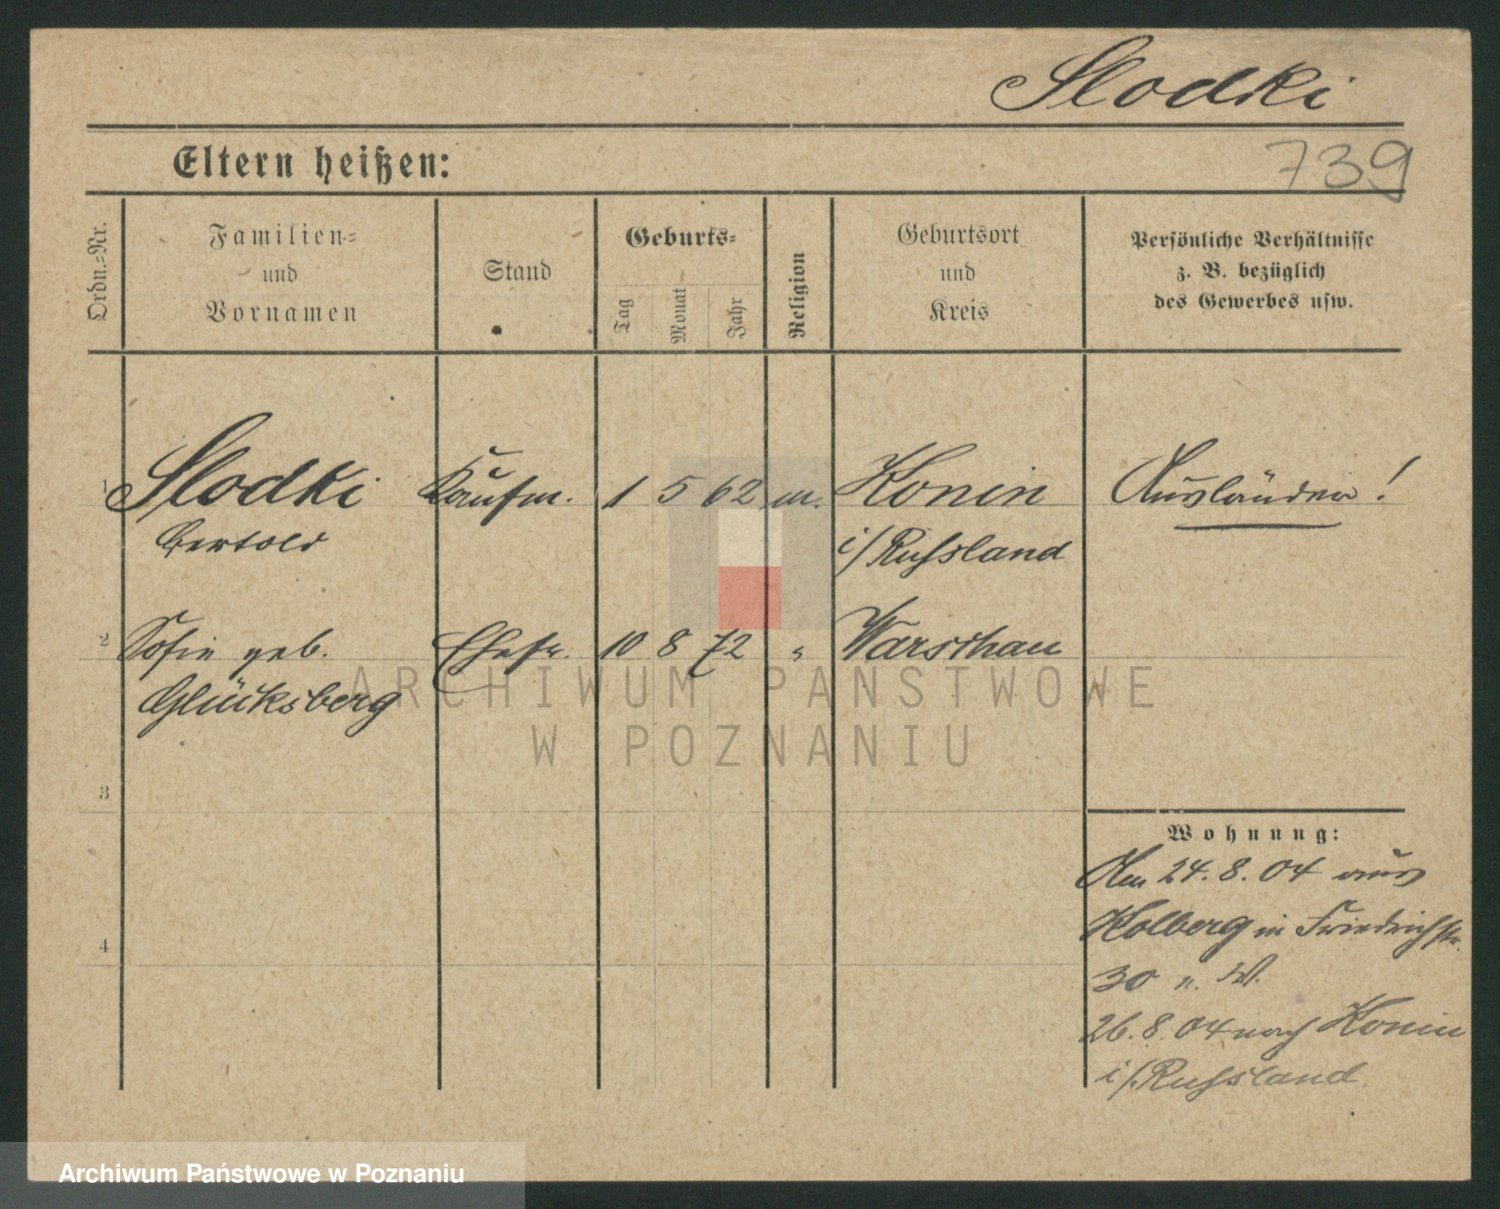 Slodki
Eltern heißen:
739
Ordn.=Nr.
Familien=
und
Vornamen
Stand
Geburts=
Tag
Monat
Jahr
Religion
Geburtsort
und
Kreis
Persönliche Verhältnisse
z. B. bezüglich
des Gewerbes usw.
1 Slodki Kaufm. 1 5 62 m. Konin Ausländer!
Bertold i/Russland
2 Sofie geb. Ehefr. 10 8 72 " Warschau
Glücksberg
ARCHIWUM PAŃSTWOWE
W POZNANIU
3
Wohnung:
Am 24. 8. 04 aus
Kolberg in Friedrichstr.
4
30 n. W.
26. 8. 04 nach Konin
i/Russland
Archiwum Państwowe w Poznaniu